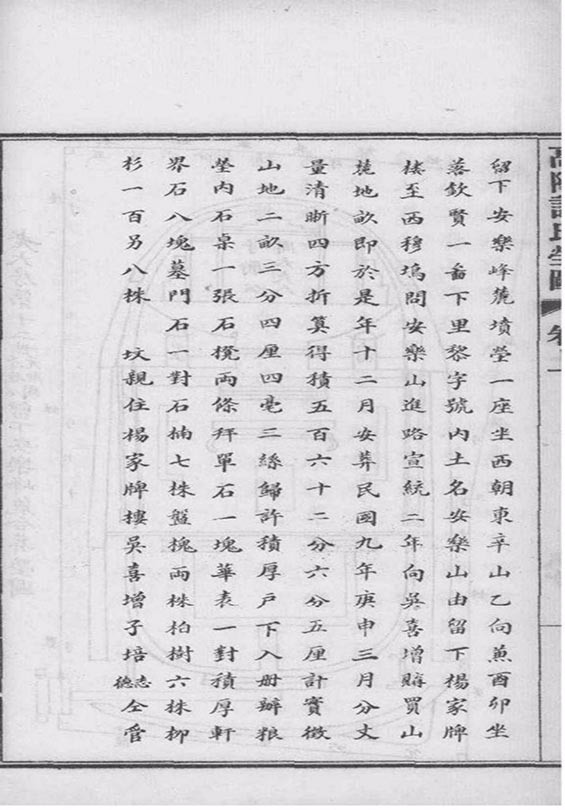 高陽許氏塋圖 卷二
留下安樂峰麓墳塋一座坐西朝東辛山乙向兼酉卯坐
落欽賢一啚下里黎字號內土名安樂山由留下楊家牌
樓至西穆塢問安樂山進路宣統二年向吳喜增購買山
蕘地畝即於是年十二月安葬民國九年庚申三月分丈
量清晰四方折算得積五百六十二分六分五厘計實徵
山地二畝三分四厘四毫三絲歸許積厚戶下入册辦粮
塋內石桌一張石櫈兩條拜單石一塊華表一對積厚軒
界石八塊墓門石一對石楠七株盤槐兩株柏樹六株柳
杉一百另八株 坟親住楊家牌樓吳喜增子培志德仝管